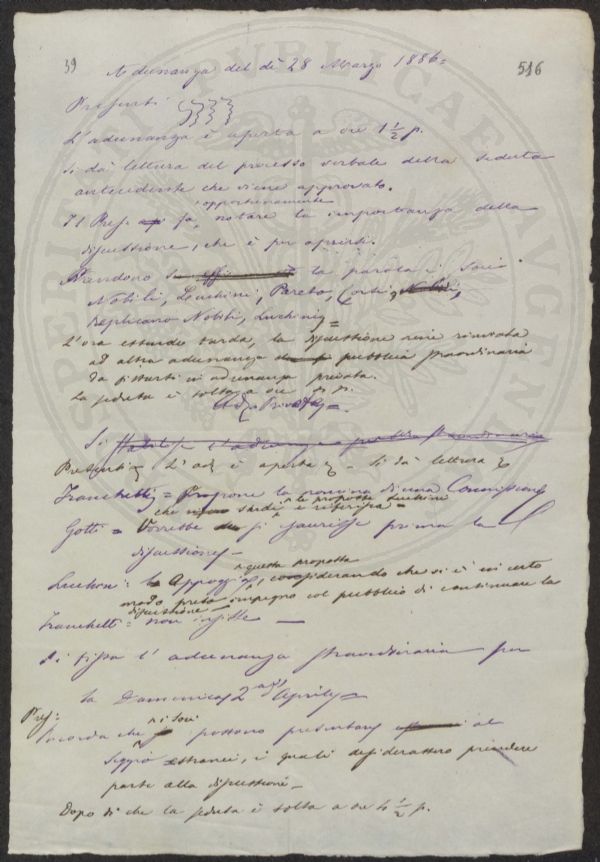 39
516
Adunanza del dì 28 Marzo 1886=
Presenti
L'adunanza è aperta a ore 1 1/2 p.
Si dà lettura del processo verbale della seduta
antecedente che viene approvato.
opportunamente
Il Pres. fa notare la importanza della
discussione, che è per aprirsi.
Prendono la parola i Soci
Nobili, Luchini, Pareto, Corti,
Replicano Nobili, Luchini
L'ora essendo tarda, la discussione viene rinviata
ad altra adunanza pubblica straordinaria
da fissarsi in adunanza privata.
La seduta è sciolta a ore
Ad. Privata=
Si stabilisce l'adunanza straordinaria
Presenti L'ad. è aperta - Si dà lettura
Franchetti = Propone la nomina di una Commissione
che studi le proposte Luchini e referisca =
Gotti = Vorrebbe si esaurisse prima la
discussione
a questa proposta
Luchini = Appoggia, considerando che si è in certo
modo preso impegno col pubblico di continuare la
discussione
Franchetti = non insiste
Si fissa l'adunanza straordinaria per
la Domenica 2 Aprile=
Pres:
i Soci
Ricorda che possono presentare al
Seggio estranei, i quali desiderassero prendere
parte alla discussione
Dopo di che la seduta è sciolta a ore 4 1/2 p.